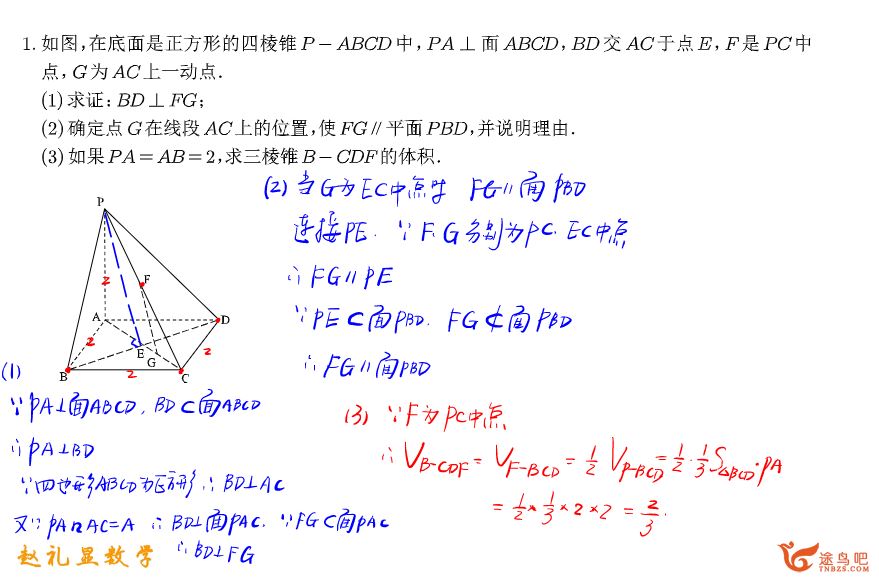 1. 如图,在底面是正方形的四棱锥P-ABCD中,PA⊥面ABCD,BD交AC于点E,F是PC中
点,G为AC上一动点.
(1)求证:BD⊥FG;
(2)确定点G在线段AC上的位置,使FG∥平面PBD,并说明理由.
(3)如果PA=AB=2,求三棱锥B-CDF的体积.
(2) 当G为EC中点时 FG∥面PBD
连接PE. ∵F、G分别为PC、EC中点
∴FG∥PE
∵PE⊂面PBD. FG⊄面PBD
∴FG∥面PBD
P
F
2
A
D
2
E
G
2
B
2
C
(1)
∵PA⊥面ABCD, BD⊂面ABCD
∴PA⊥BD
∵四边形ABCD为正方形 ∴BD⊥AC
又∵PA∩AC=A ∴BD⊥面PAC. ∵FG⊂面PAC
∴BD⊥FG
(3) ∵F为PC中点
∴V_{B-CDF} = V_{F-BCD} = 1/2 V_{P-BCD} = 1/2·1/3 S_{△BCD}·PA
= 1/2×1/3×2×2 = 2/3.
赵礼显数学
途鸟吧
TNBZS.COM